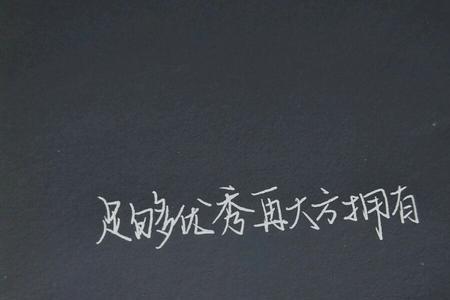 足够优秀再大方拥有